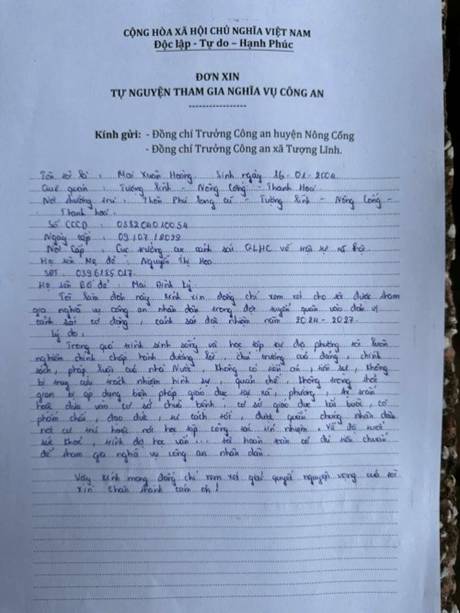 CỘNG HÒA XÃ HỘI CHỦ NGHĨA VIỆT NAM
Độc lập - Tự do – Hạnh Phúc
ĐƠN XIN
TỰ NGUYỆN THAM GIA NGHĨA VỤ CÔNG AN
Kính gửi: - Đồng chí Trưởng Công an huyện Nông Cống
- Đồng chí Trưởng Công an xã Tượng Lĩnh.
Tôi tên là: Mai Xuân Hoàng. Sinh ngày 16-01-2004
Quê quán: Tượng Lĩnh - Nông Cống - Thanh Hoá
Nơi thường trú: Thôn Phú - Tượng Lĩnh - Nông Cống -
Thanh hoá.
Số CCCD:
Ngày cấp:
Nơi Cấp: Cục trưởng cục cảnh sát QLHC về trật tự xã hội
Họ tên Mẹ đẻ: Nguyễn Thị
SĐT:
Họ tên Bố đẻ: Mai Đình Lý
Tôi làm đơn này kính xin đồng chí xem xét cho tôi được tham
gia nghĩa vụ công an nhân dân trong đợt tuyển quân vào đơn vị
cảnh sát cơ động, cảnh sát đặc nhiệm năm 2024-2027.
Lý do:
Trong quá trình sinh sống và học tập tại địa phương tôi luôn
nghiêm chỉnh chấp hành đường lối, chủ trương của đảng, chính
sách, pháp luật của nhà Nước. Không có tiền án, tiền sự, không
bị truy cứu trách nhiệm hình sự, quản chế, không trong thời
gian bị áp dụng biện pháp giáo dục tại xã, phường, thị trấn
hoặc đưa vào cơ sở chữa bệnh, cơ sở giáo dục bắt buộc, có
phẩm chất, đạo đức, tư cách tốt, được quần chúng nhân dân
nơi cư trú hoặc nơi học tập công tác tín nhiệm. Về độ tuổi
sức khoẻ, trình độ học vấn... tôi hoàn toàn có đủ tiêu chuẩn
để tham gia nghĩa vụ công an nhân dân.
Vậy kính mong đồng chí xem xét giải quyết nguyện vọng của tôi
xin chân thành cảm ơn!